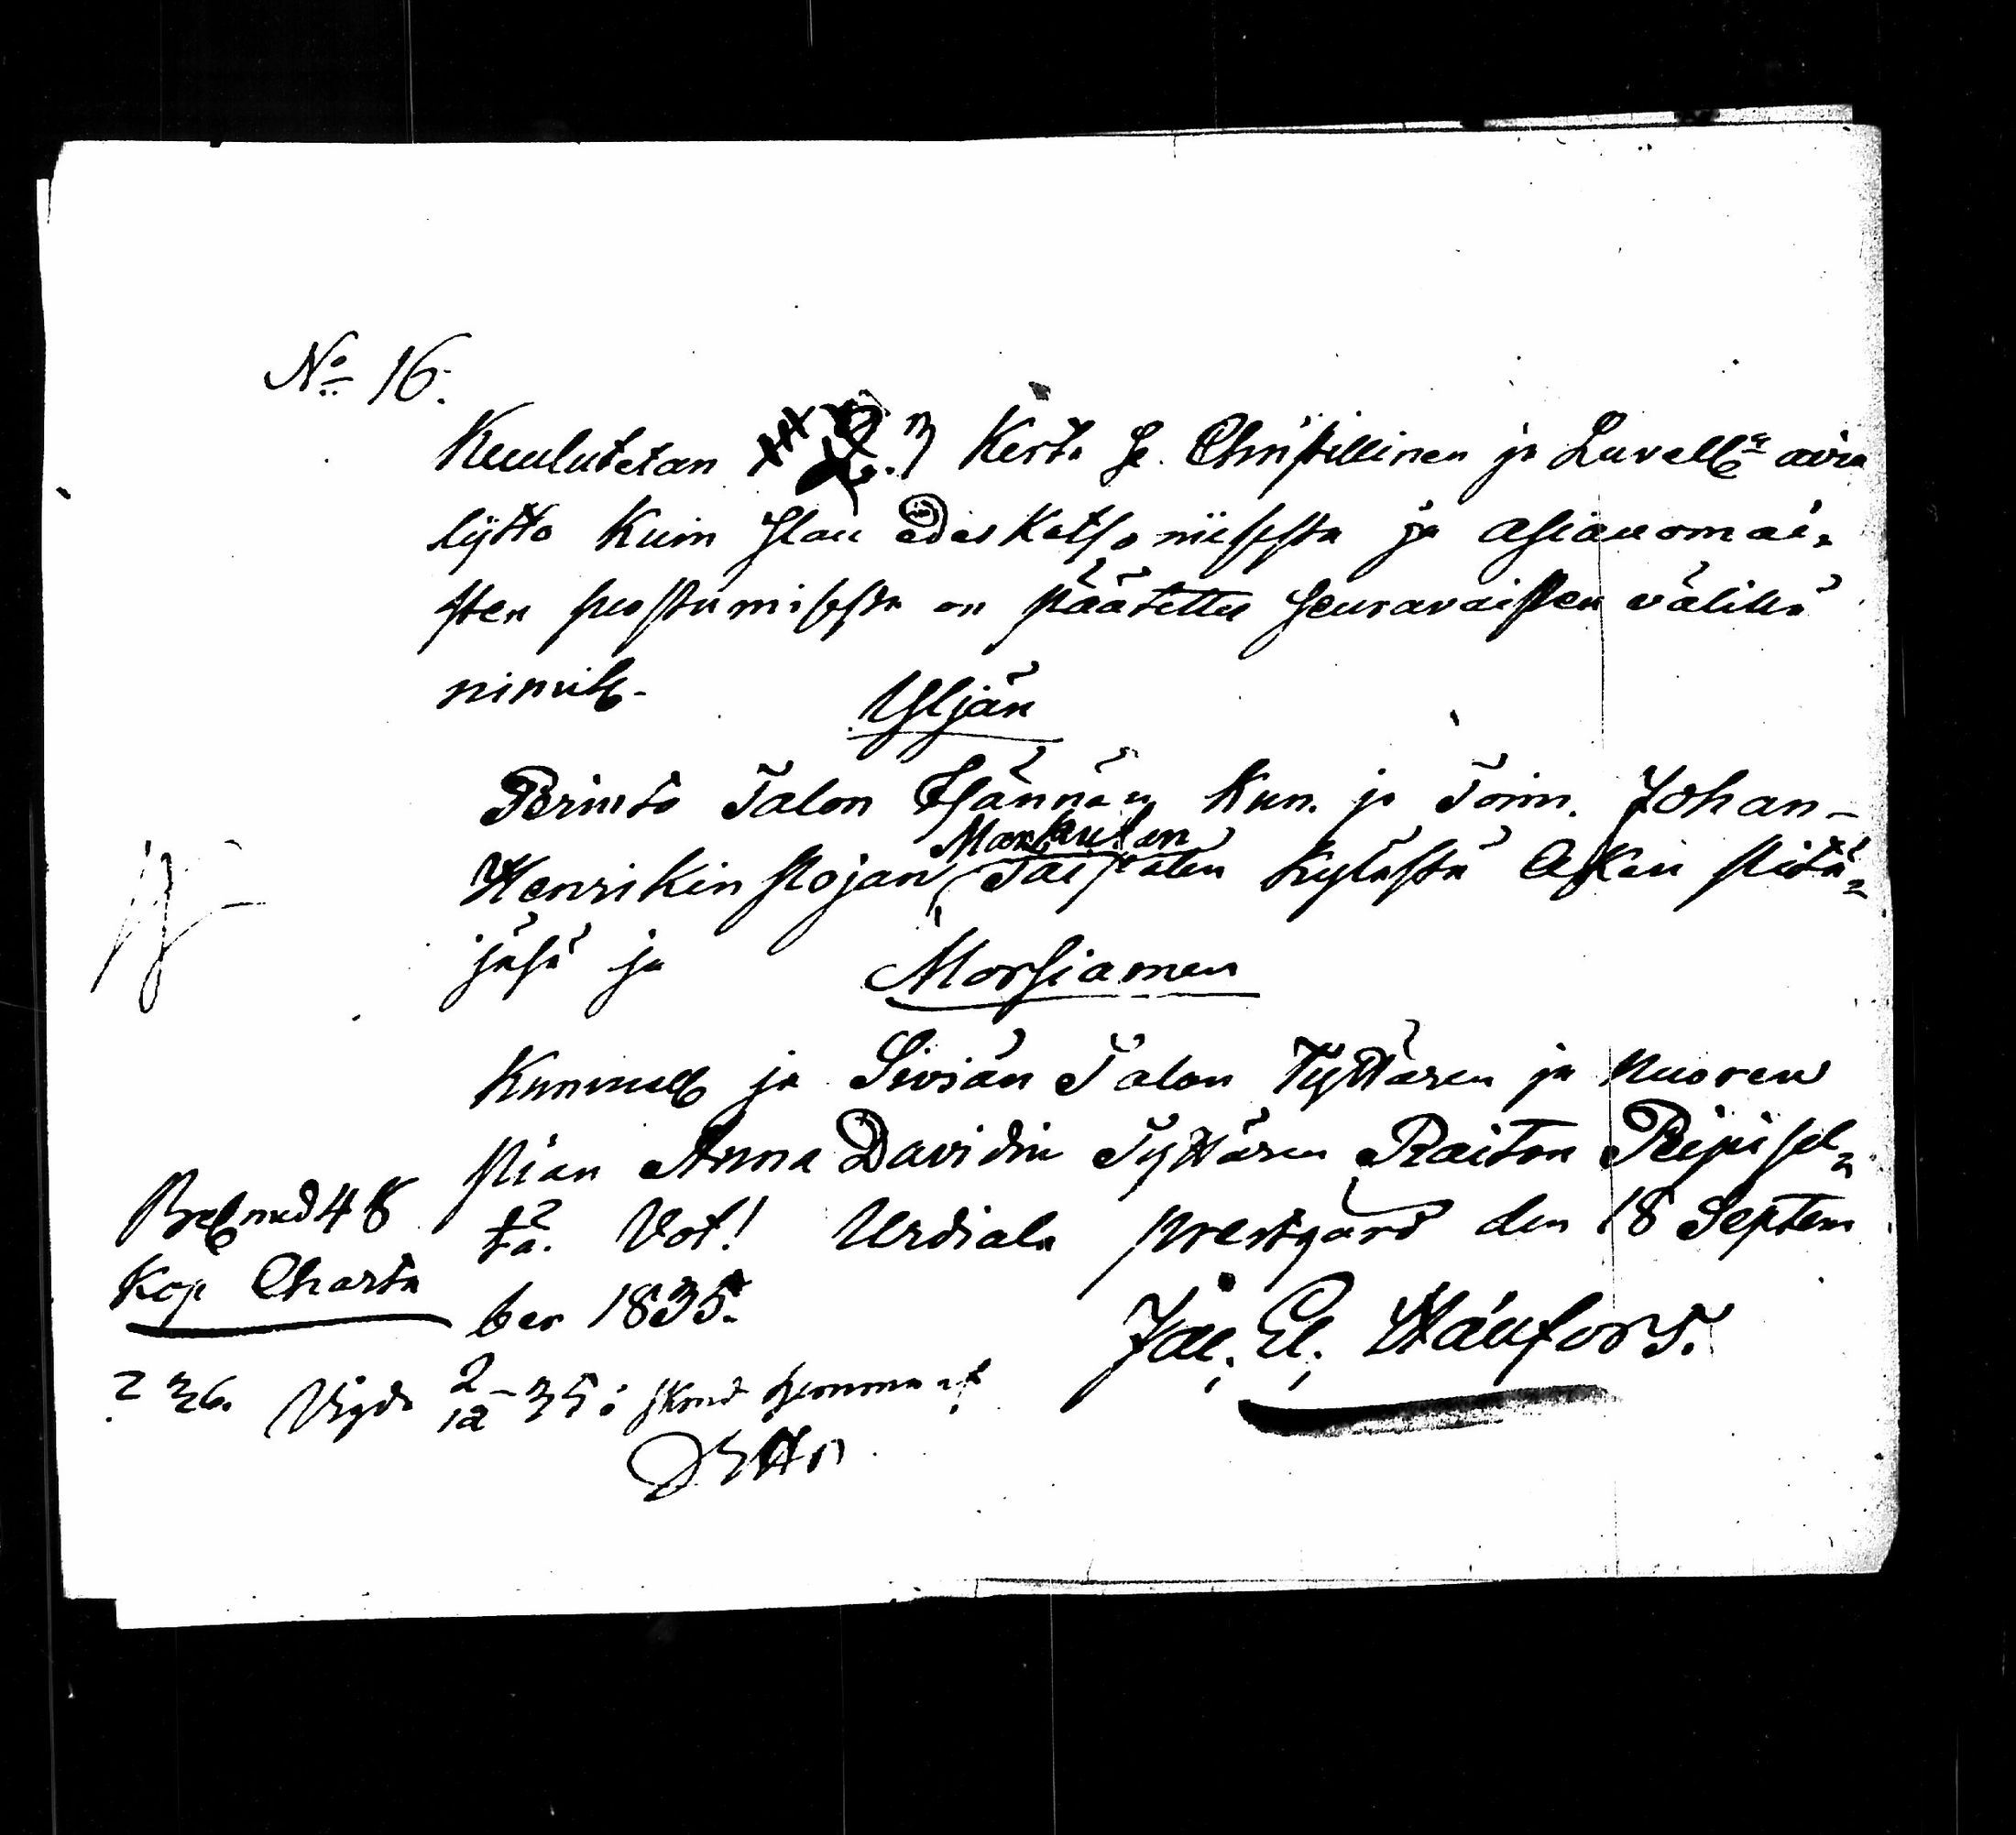 No 16.
Kuulutetan 3 Kerta Se Christillinen ja Luvallen avio
lijtto kuin Slau edes Katsomisesta ja asianomai-
sten suostumisesta on päätettu Seuravaisten välillä
nimitt.
Yljän
Perinto Talon Isännän Kun. ja Toim. Johan
Henrikin pojan Taipalen Kylästä Akan pitä-
Markulan
jäsä ja
Morsiamen
Kunniall ja Siviän Talon Tyttären ja nuoren
pian Anna Davidin Tyttären Raiton Ripisel-
tä. Vot! Urdiala prestgård den 18 Septem
ber 1835.
Jac. El. Stäufors.
Bref med 48
Kop Charta
236. Vigde 2/12 35 i hemma af